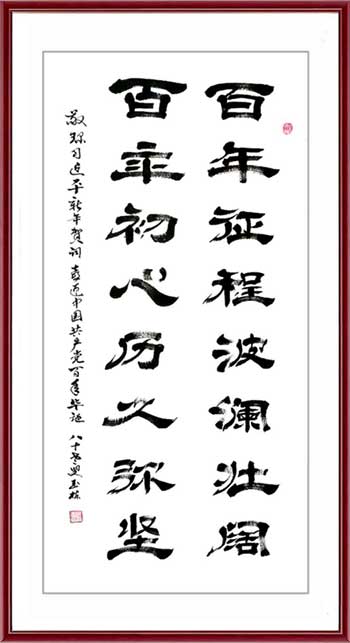 百年征程波澜壮阔
百年初心历久弥坚
敬録习近平新年贺词 喜迎中国共产党百年华诞 八十老叟玉栋